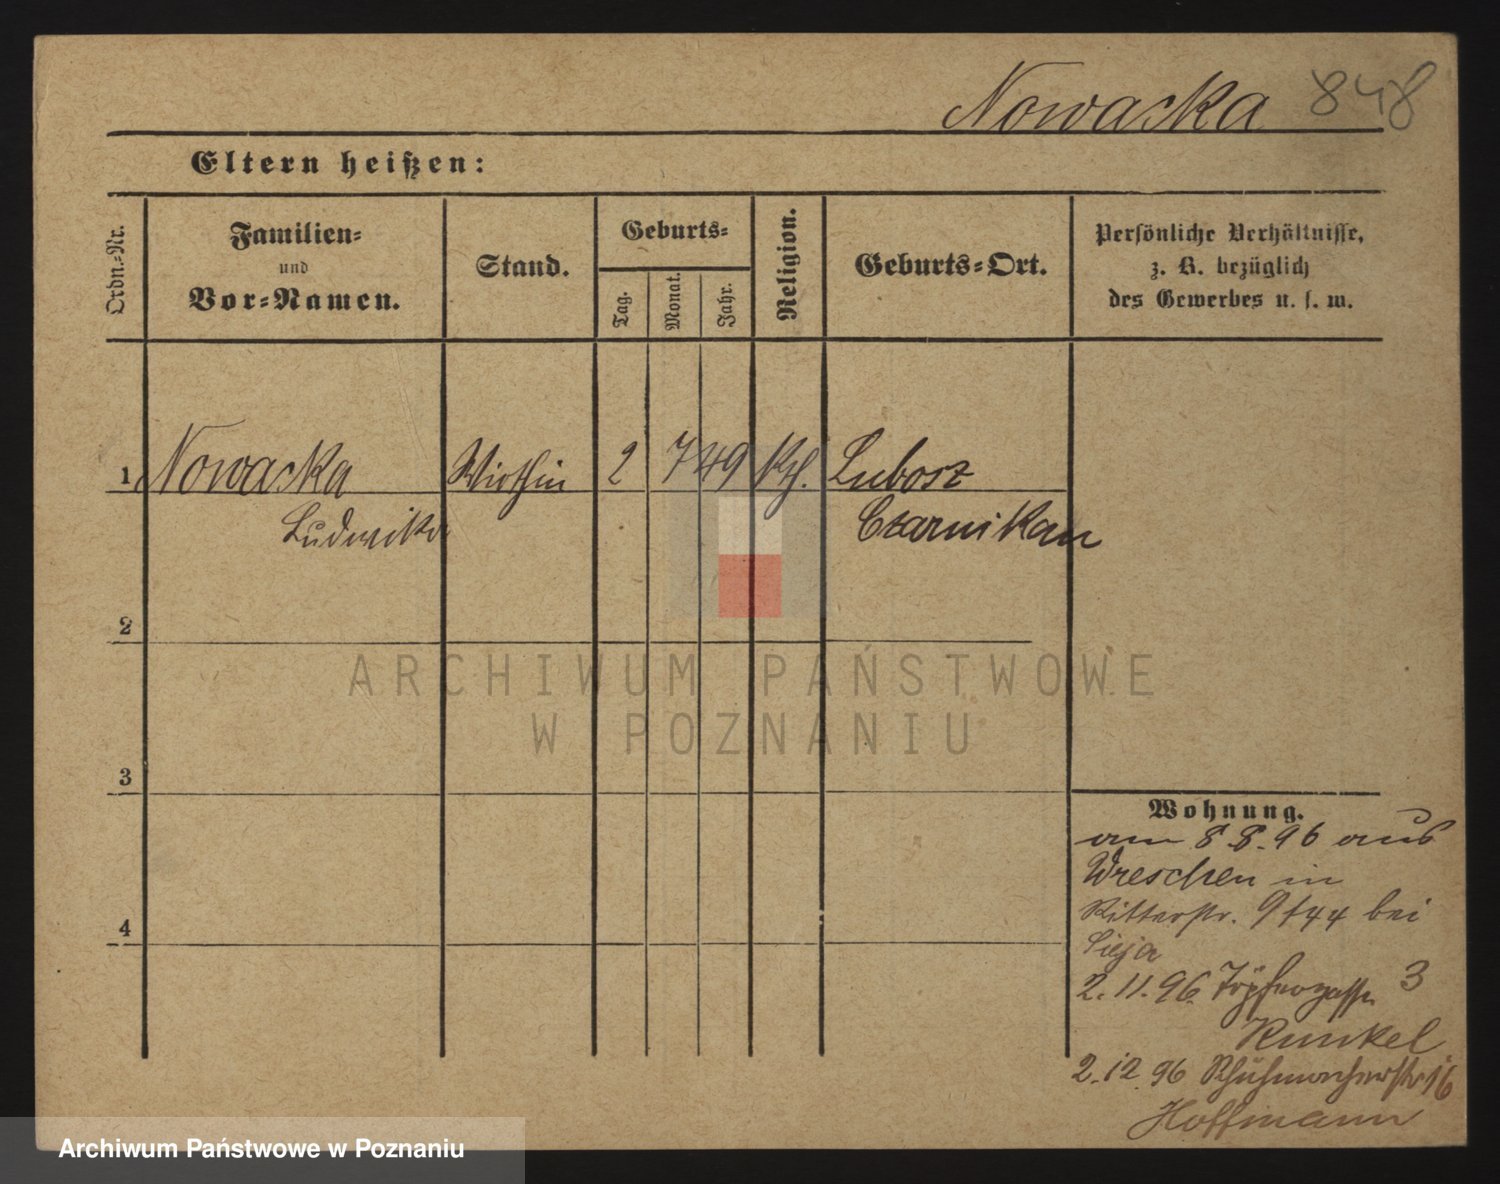 Nowacka 848
Eltern heißen:
Ordn.-Nr.
Familien-
und
Vor-Namen.
Stand.
Geburts-
Tag.
Monat.
Jahr.
Religion.
Geburts-Ort.
Persönliche Verhältnisse,
z. B. bezüglich
des Gewerbes u. s. w.
1 Nowacka Wirthin 2 7 49 kth. Lubosz
Ludwika Czarnikau
2
ARCHIWUM PAŃSTWOWE
W POZNANIU
3
Wohnung.
am 8.8.96 aus
Wreschen in
Ritterstr. 9 bei
4
2.11.96 Töpfergasse 3
Kunkel
2.12.96 Schuhmacherstr 16
Hoffmann
Archiwum Państwowe w Poznaniu